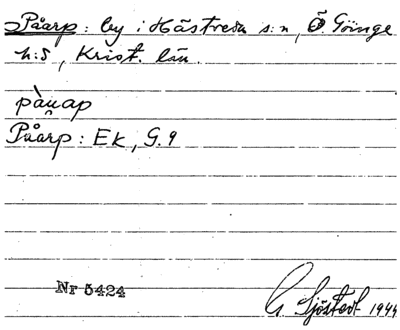 Påarp: by i Hästveda s:n, Ö. Göinge
h:d, Krist. län.
pàu̯ap
Påarp: Ek, G. 9
Nr 5424
G. Sjöstedt 1944